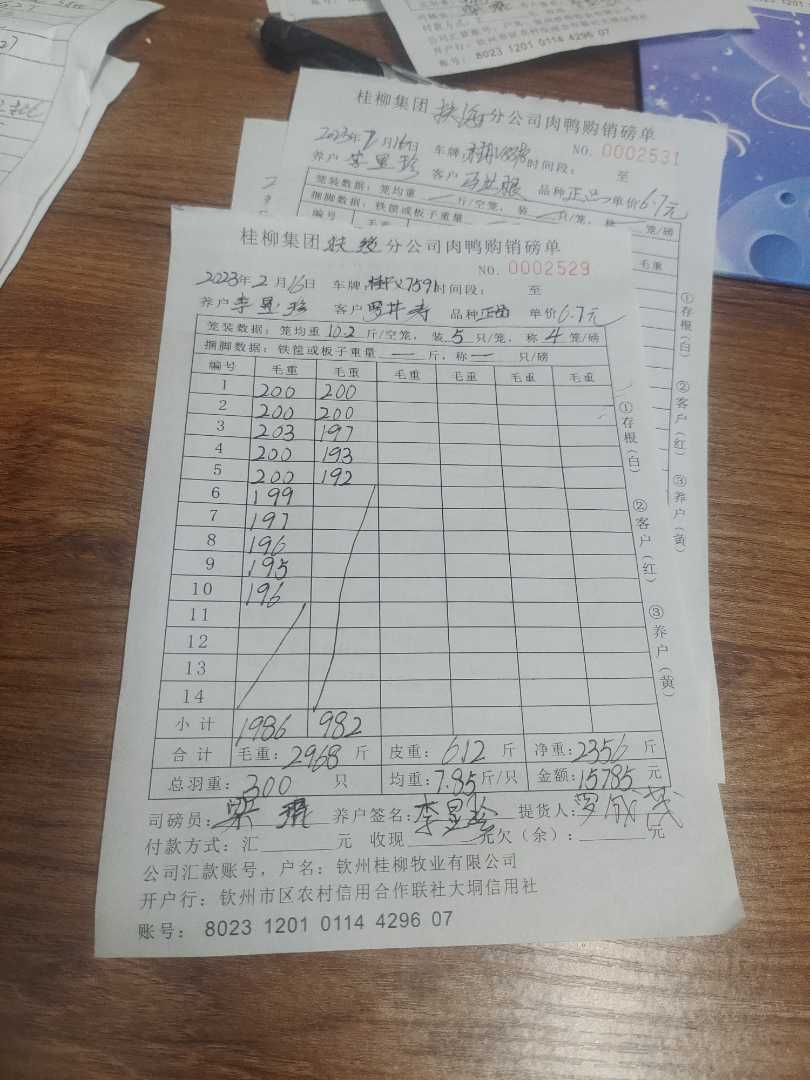 开户行：钦州市区农村信用合作联社大垌信用社
账号： 8023 1201 0114 4296 07
桂柳集团 分公司肉鸭购销磅单
2023年2月16日 车牌 时间段： 至
NO. 0002531
养户 李显珍 客户 品种 正 单价6.7元
笼装数据：笼均重 斤/空笼，装 只/笼，称 笼/磅
捆脚数据：铁筐或板子重量
编号 毛重
毛重
①存根（白） ②客户（红） ③养户（黄）
桂柳集团 分公司肉鸭购销磅单
NO. 0002529
2023年2月16日 车牌 7591 时间段： 至
养户 李显珍 客户 品种 正 单价6.7元
笼装数据：笼均重 10.2 斤/空笼，装 5 只/笼，称 4 笼/磅
捆脚数据：铁筐或板子重量 — 斤，称 — 只/磅
编号 毛重 毛重 毛重 毛重 毛重 毛重
1 200 200
2 200 200
3 203 197
4 200 193
5 200 192
6 199
7 197
8 196
9 195
10 196
11
12
13
14
小计 1986 982
合计 毛重：2968 斤 皮重：612 斤 净重：2356 斤
总羽重：300 只 均重：7.85 斤/只 金额：15785 元
司磅员： 养户签名：李显珍 提货人：
付款方式：汇 元 收现 元欠（余）： 元
公司汇款账号，户名：钦州桂柳牧业有限公司
开户行：钦州市区农村信用合作联社大垌信用社
账号： 8023 1201 0114 4296 07
①存根（白） ②客户（红） ③养户（黄）